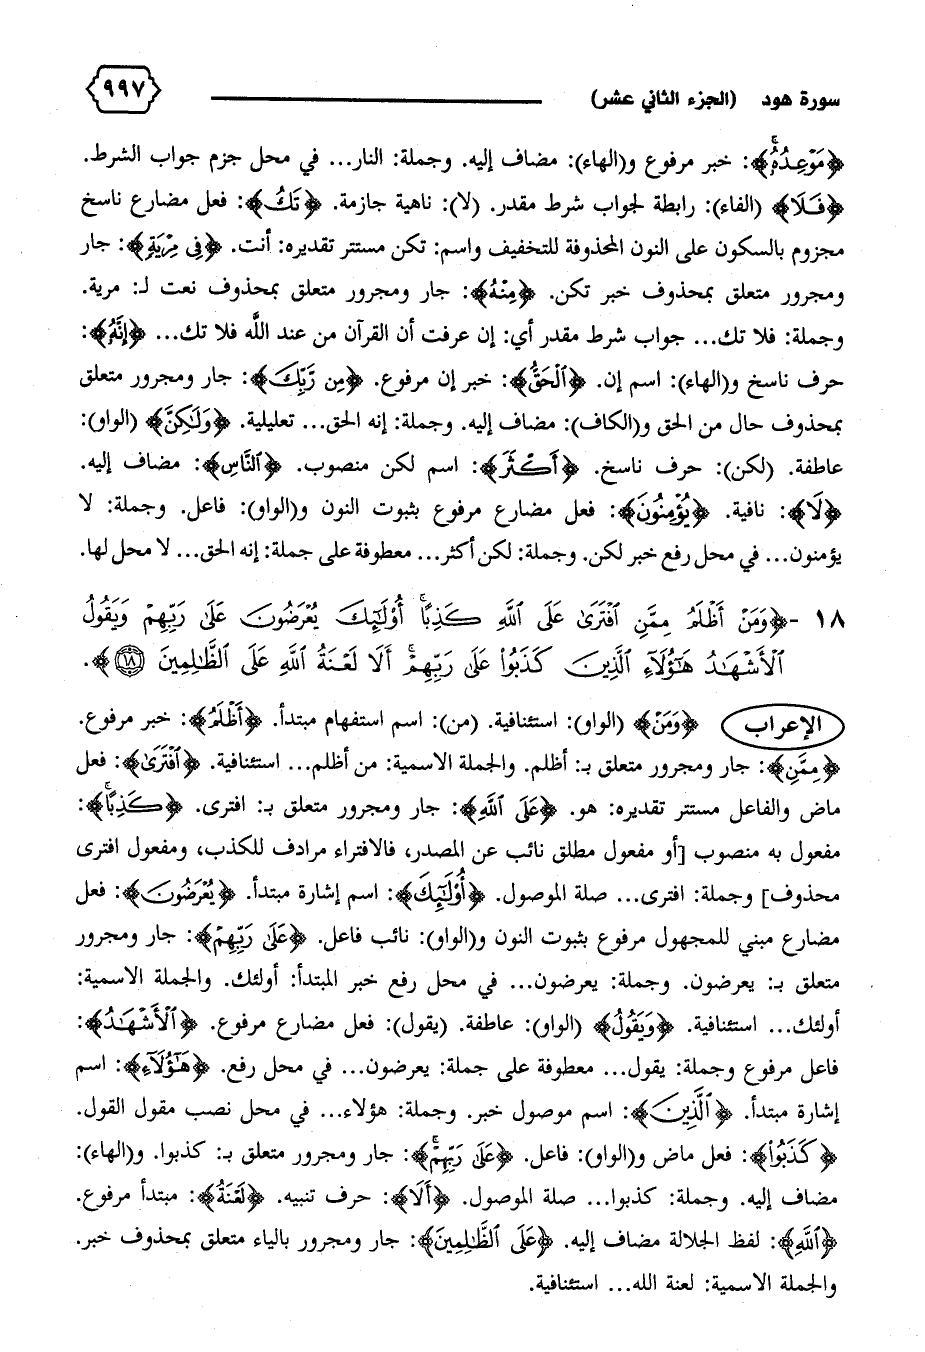 سورة هود (الجزء الثاني عشر) ٩٩٧
﴿مَوْعِدُهُۥۚ﴾: خبر مرفوع و(الهاء): مضاف إليه. وجملة: النار... في محل جزم جواب الشرط.
﴿فَلَا﴾ (الفاء): رابطة لجواب شرط مقدر. (لا): ناهية جازمة. ﴿تَكُ﴾: فعل مضارع ناسخ
مجزوم بالسكون على النون المحذوفة للتخفيف واسم: تكن مستتر تقديره: أنت. ﴿فِى مِرْيَةٍ﴾: جار
ومجرور متعلق بمحذوف خبر تكن. ﴿مِّنْهُ﴾: جار ومجرور متعلق بمحذوف نعت لـ: مرية.
وجملة: فلا تك... جواب شرط مقدر أي: إن عرفت أن القرآن من عند اللَّه فلا تك... ﴿إِنَّهُ﴾:
حرف ناسخ و(الهاء): اسم إن. ﴿ٱلْحَقُّ﴾: خبر إن مرفوع. ﴿مِن رَّبِّكَ﴾: جار ومجرور متعلق
بمحذوف حال من الحق و(الكاف): مضاف إليه. وجملة: إنه الحق... تعليلية. ﴿وَلَٰكِنَّ﴾ (الواو):
عاطفة. (لكن): حرف ناسخ. ﴿أَكْثَرَ﴾: اسم لكن منصوب. ﴿ٱلنَّاسِ﴾: مضاف إليه.
﴿لَا﴾: نافية. ﴿يُؤْمِنُونَ﴾: فعل مضارع مرفوع بثبوت النون و(الواو): فاعل. وجملة: لا
يؤمنون... في محل رفع خبر لكن. وجملة: لكن أكثر... معطوفة على جملة: إنه الحق... لا محل لها.
١٨ -﴿وَمَنْ أَظْلَمُ مِمَّنِ ٱفْتَرَىٰ عَلَى ٱللَّهِ كَذِبًاۚ أُو۟لَٰٓئِكَ يُعْرَضُونَ عَلَىٰ رَبِّهِمْ وَيَقُولُ
ٱلْأَشْهَٰدُ هَٰٓؤُلَآءِ ٱلَّذِينَ كَذَبُوا۟ عَلَىٰ رَبِّهِمْۚ أَلَا لَعْنَةُ ٱللَّهِ عَلَى ٱلظَّٰلِمِينَ ١٨﴾.
الإعراب ﴿وَمَنْ﴾ (الواو): استئنافية. (من): اسم استفهام مبتدأ. ﴿أَظْلَمُ﴾: خبر مرفوع.
﴿مِمَّنِ﴾: جار ومجرور متعلق بـ: أظلم. والجملة الاسمية: من أظلم... استئنافية. ﴿ٱفْتَرَىٰ﴾: فعل
ماض والفاعل مستتر تقديره: هو. ﴿عَلَى ٱللَّهِ﴾: جار ومجرور متعلق بـ: افترى. ﴿كَذِبًاۚ﴾:
مفعول به منصوب [أو مفعول مطلق نائب عن المصدر، فالافتراء مرادف للكذب، ومفعول افترى
محذوف] وجملة: افترى... صلة الموصول. ﴿أُو۟لَٰٓئِكَ﴾: اسم إشارة مبتدأ. ﴿يُعْرَضُونَ﴾: فعل
مضارع مبني للمجهول مرفوع بثبوت النون و(الواو): نائب فاعل. ﴿عَلَىٰ رَبِّهِمْ﴾: جار ومجرور
متعلق بـ: يعرضون. وجملة: يعرضون... في محل رفع خبر المبتدأ: أولئك. والجملة الاسمية:
أولئك... استئنافية. ﴿وَيَقُولُ﴾ (الواو): عاطفة. (يقول): فعل مضارع مرفوع. ﴿ٱلْأَشْهَٰدُ﴾:
فاعل مرفوع وجملة: يقول... معطوفة على جملة: يعرضون... في محل رفع. ﴿هَٰٓؤُلَآءِ﴾: اسم
إشارة مبتدأ. ﴿ٱلَّذِينَ﴾: اسم موصول خبر. وجملة: هؤلاء... في محل نصب مقول القول.
﴿كَذَبُوا۟﴾: فعل ماض و(الواو): فاعل. ﴿عَلَىٰ رَبِّهِمْۚ﴾: جار ومجرور متعلق بـ: كذبوا. و(الهاء):
مضاف إليه. وجملة: كذبوا... صلة الموصول. ﴿أَلَا﴾: حرف تنبيه. ﴿لَعْنَةُ﴾: مبتدأ مرفوع.
﴿ٱللَّهِ﴾: لفظ الجلالة مضاف إليه. ﴿عَلَى ٱلظَّٰلِمِينَ﴾: جار ومجرور بالياء متعلق بمحذوف خبر.
والجملة الاسمية: لعنة الله... استئنافية.